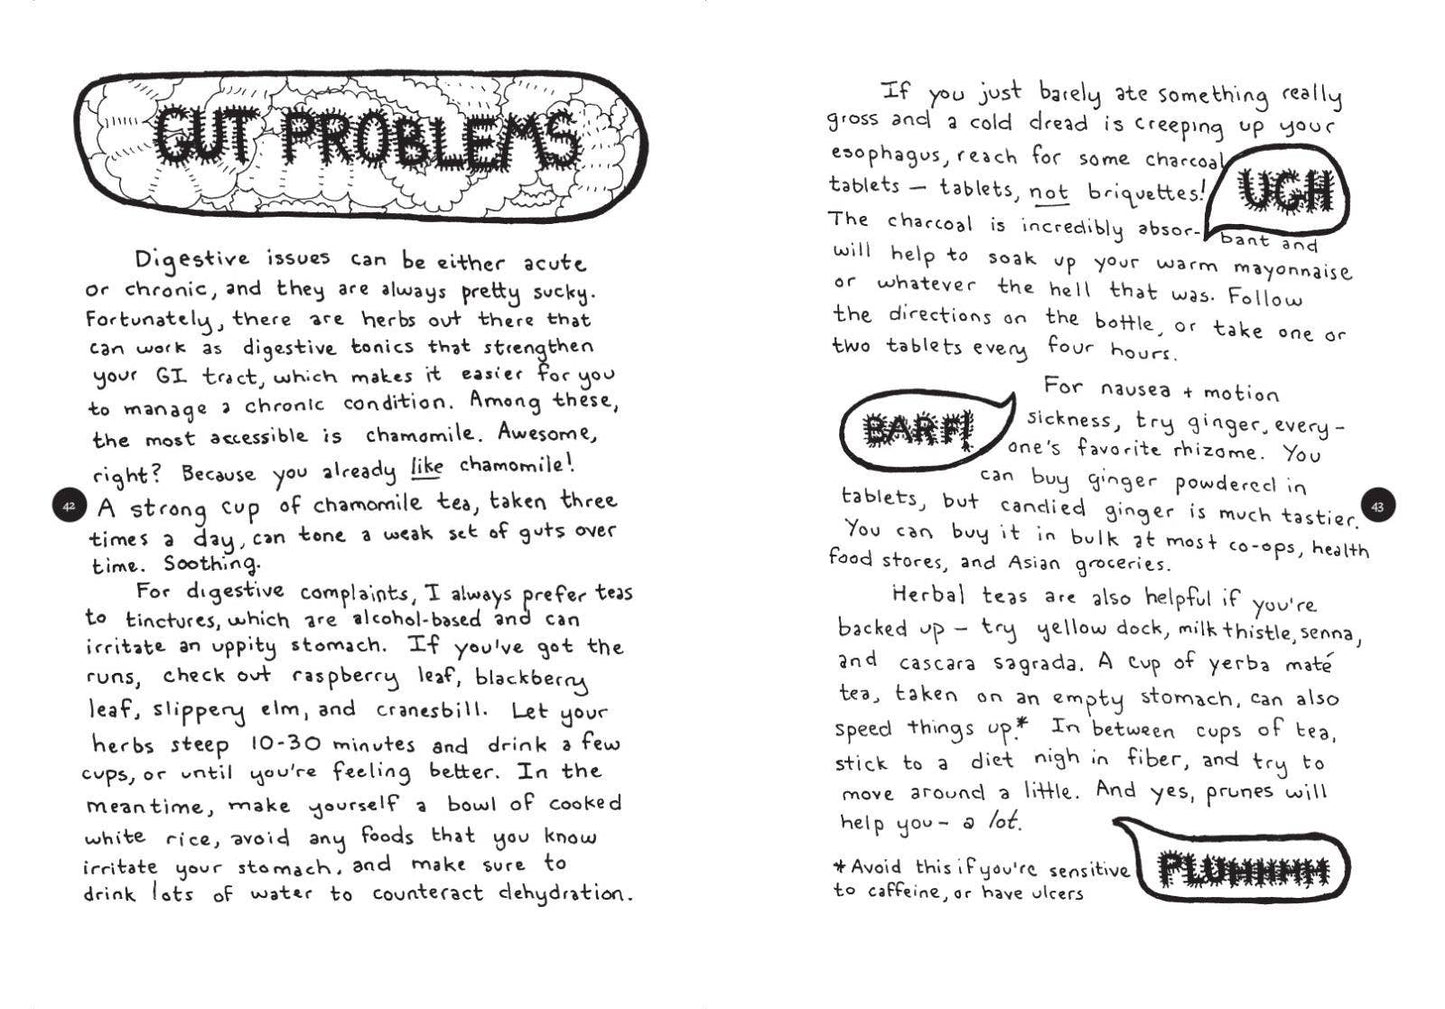 GUT PROBLEMS
Digestive issues can be either acute
or chronic, and they are always pretty sucky.
Fortunately, there are herbs out there that
can work as digestive tonics that strengthen
your GI tract, which makes it easier for you
to manage a chronic condition. Among these,
the most accessible is chamomile. Awesome,
right? Because you already like chamomile!
42
A strong cup of chamomile tea, taken three
times a day, can tone a weak set of guts over
time. Soothing.
For digestive complaints, I always prefer teas
to tinctures, which are alcohol-based and can
irritate an uppity stomach. If you've got the
runs, check out raspberry leaf, blackberry
leaf, slippery elm, and cranesbill. Let your
herbs steep 10-30 minutes and drink a few
cups, or until you're feeling better. In the
meantime, make yourself a bowl of cooked
white rice, avoid any foods that you know
irritate your stomach, and make sure to
drink lots of water to counteract dehydration.
If you just barely ate something really
gross and a cold dread is creeping up your
esophagus, reach for some charcoal
tablets – tablets, not briquettes!
UGH
The charcoal is incredibly absor-
bant and
will help to soak up your warm mayonnaise
or whatever the hell that was. Follow
the directions on the bottle, or take one or
two tablets every four hours.
BARF!
For nausea + motion
sickness, try ginger, every-
one's favorite rhizome. You
can buy ginger powdered in
tablets, but candied ginger is much tastier.
43
You can buy it in bulk at most co-ops, health
food stores, and Asian groceries.
Herbal teas are also helpful if you're
backed up – try yellow dock, milk thistle, senna,
and cascara sagrada. A cup of yerba maté
tea, taken on an empty stomach, can also
speed things up.* In between cups of tea,
stick to a diet high in fiber, and try to
move around a little. And yes, prunes will
help you – a lot.
*Avoid this if you're sensitive
to caffeine, or have ulcers
PLUHHHH